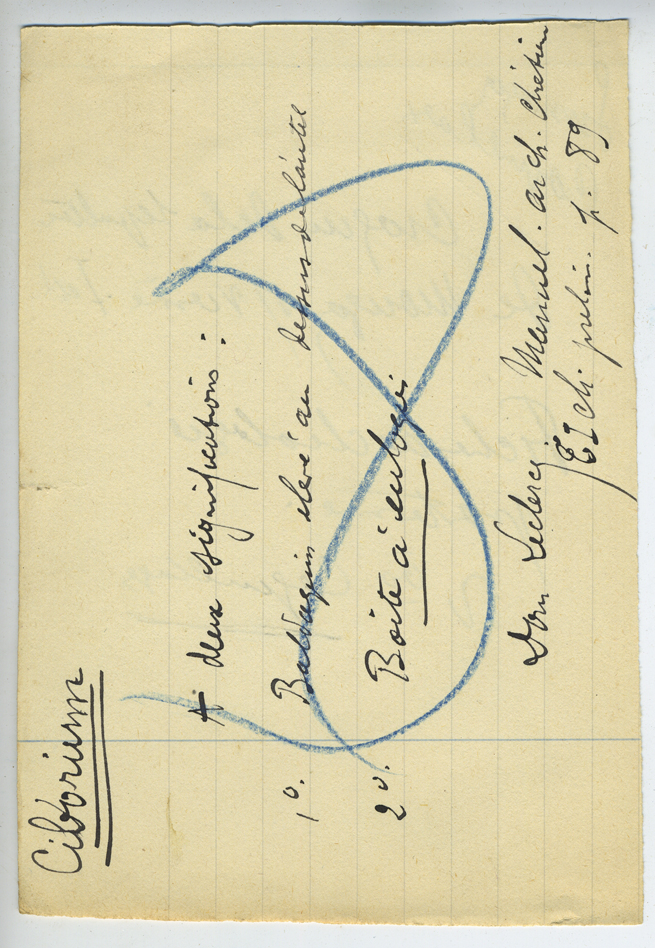 Ciborium
A deux significations :
1º. Baldaquin élevé au dessus de l'autel
2º. Boîte à eulogies
Dom Leclercq Manuel. arch. Chrétien
ch. prélim. p. 89